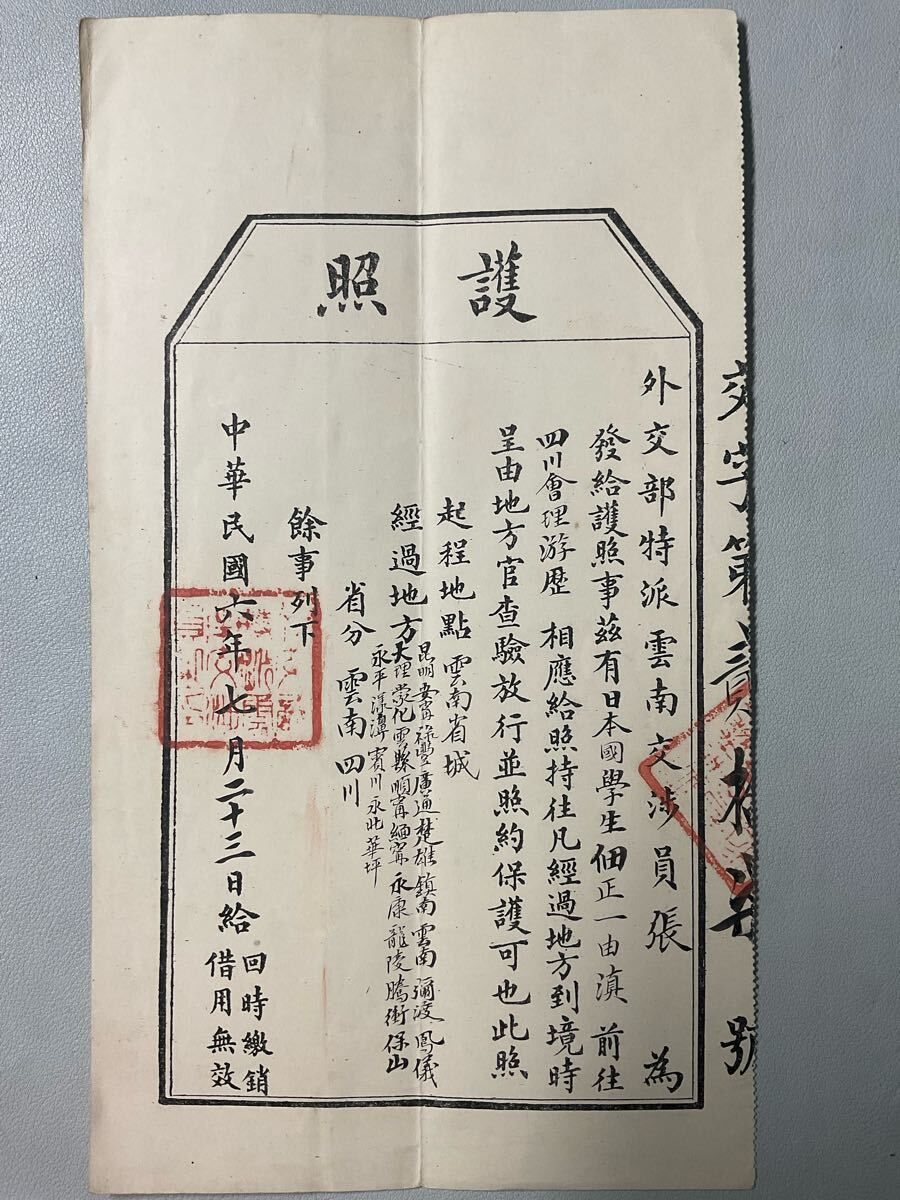 護照
外交部特派雲南交涉員張 為
發給護照事茲有日本國學生佃正一由滇 前往
四川會理游歷 相應給照持往凡經過地方到境時
呈由地方官查驗放行並照約保護可也此照
起程地點雲南省城
經過地方昆明安甯祿豐廣通楚雄鎮南雲南彌渡鳳儀
大理蒙化雲縣順甯緬甯永康龍陵騰衝保山
永平漾濞賓川永北華坪
省分雲南四川
餘事列下
中華民國六年七月二十三日給
回時繳銷
借用無效
交字第 號